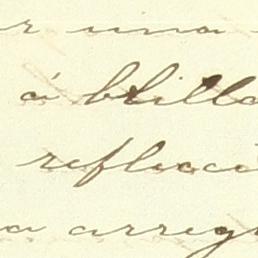 r una
á brilla
reflecci
a arreg